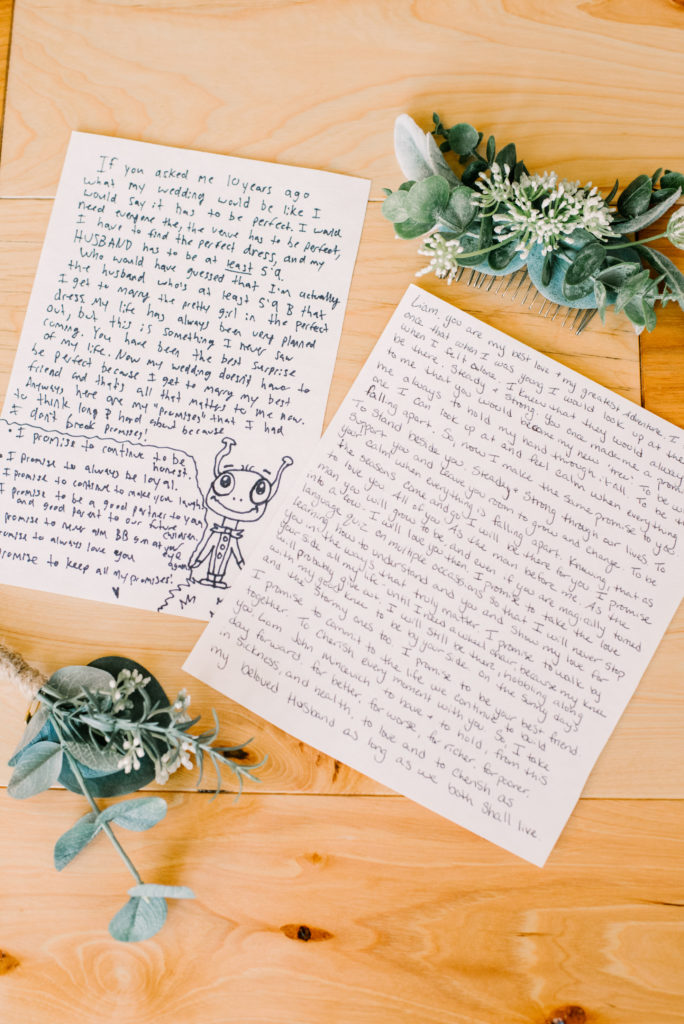 If you asked me 10 years ago
what my wedding would be like I
would say it has to be perfect. I would
need everyone the, the venue has to be perfect,
I have to find the perfect dress, and my
HUSBAND has to be at least 5'9.
Who would have guessed that I'm actually
the husband who's at least 5'9 & that
I get to marry the pretty girl in the perfect
dress. My life has always been very planned
out, but this is something I never saw
coming. You have been the best surprise
of my life. Now my wedding doesn't have to
be perfect because I get to marry my best
friend and that's all that matters to me now.
Anyways here are my "promises" that I had
to think long & hard about because
I don't break promises!
I promise to continue to be
honest.
I promise to always be loyal.
I promise to continue to make you laugh
I promise to be a good partner to you
and good parent to our future
children
promise to never aim BB gm at your
eye
again
promise to always love you
promise to keep all my promises!
Liam, you are my best love & my greatest adventure. I
once that when I was young I would look up at the
when I felt alone. I knew that they would always
be there. Steady & Strong. You once made me a prom
to me that you would become my new 'tree'. To be w
me always to hold my hand through it all. To be th
one I can look up at and feel calm when everything
falling apart. So, now I make the same promise to you
To stand beside you. Steady & Strong through our lives. To
support you and leave you room to grow and change. To be
your calm when everything is falling apart. Knowing, that as
the seasons come and go I will be there for you. I promise
to love you. All of you. As the man before me. As the
man you will grow to be and even if you are magically turned
into a cow. I will love you then. I promise to take the love
language quiz on multiple occasions so that I will never stop
learning how to understand you and show my love for
you in the ways that truly matter. I promise to walk by
your side all my life until I need a wheel chair because my knee
will probably give out. I will still be there, hobbling along
with my good knee to be by your side on the sunny days
and the stormy ones too. I promise to be your best friend
I promise to commit to the life we continue to build
together. To cherish every moment with you. So, I take
you Liam John to have & to hold, from this
day forward, for better, for worse, for richer, for poorer,
in sickness, and health, to love and to cherish as
my beloved Husband as long as we both shall live.